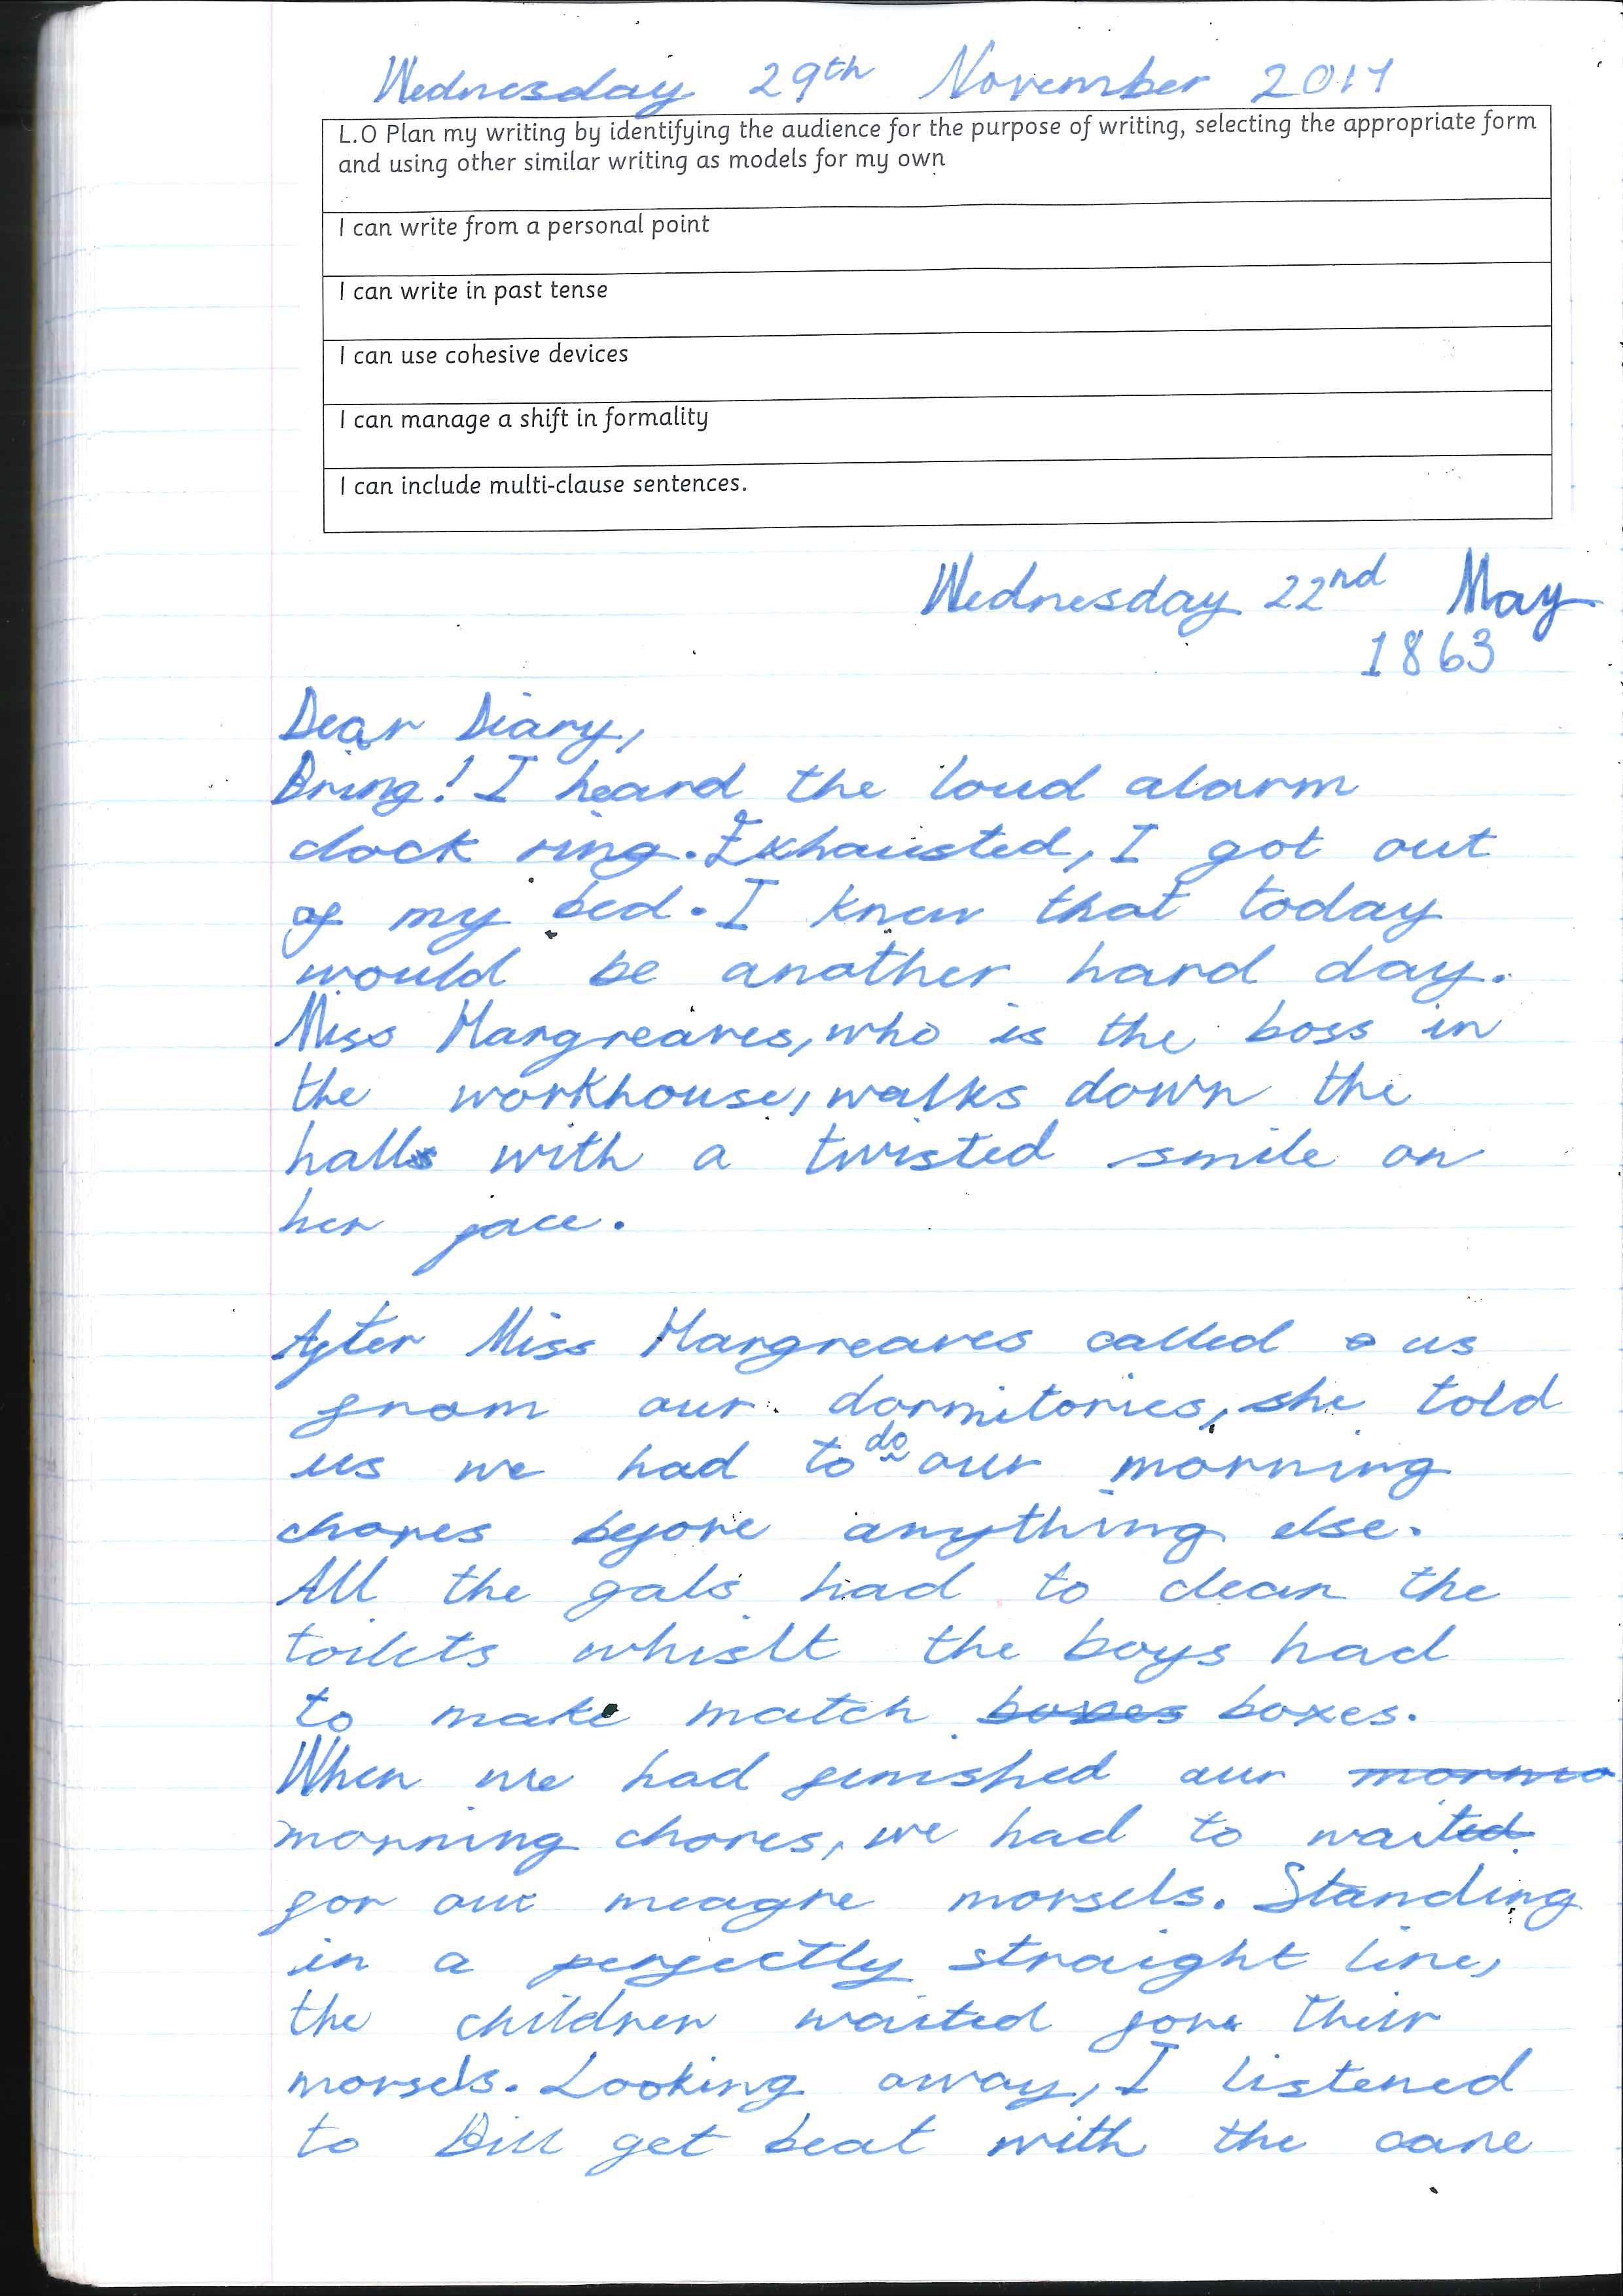 Wednesday 29th November 2017
L.O Plan my writing by identifying the audience for the purpose of writing, selecting the appropriate form
and using other similar writing as models for my own
I can write from a personal point
I can write in past tense
I can use cohesive devices
I can manage a shift in formality
I can include multi-clause sentences.
Wednesday 22nd May
1863
Dear Diary,
Bring! I heard the loud alarm
clock ring. Exhausted, I got out
of my bed. I knew that today
would be another hard day.
Miss Hargreaves, who is the boss in
the workhouse, walks down the
halls with a twisted smile on
her face.
After Miss Hargreaves called us
from our dormitories, she told
us we had to do our morning
chores before anything else.
All the gals had to clean the
toilets whislt the boys had
to make match boxes boxes.
When we had finished our
morning chores, we had to waited
for our meagre morsels. Standing
in a perfectly straight line,
the children waited for their
morsels. Looking away, I listened
to Bill get beat with the cane